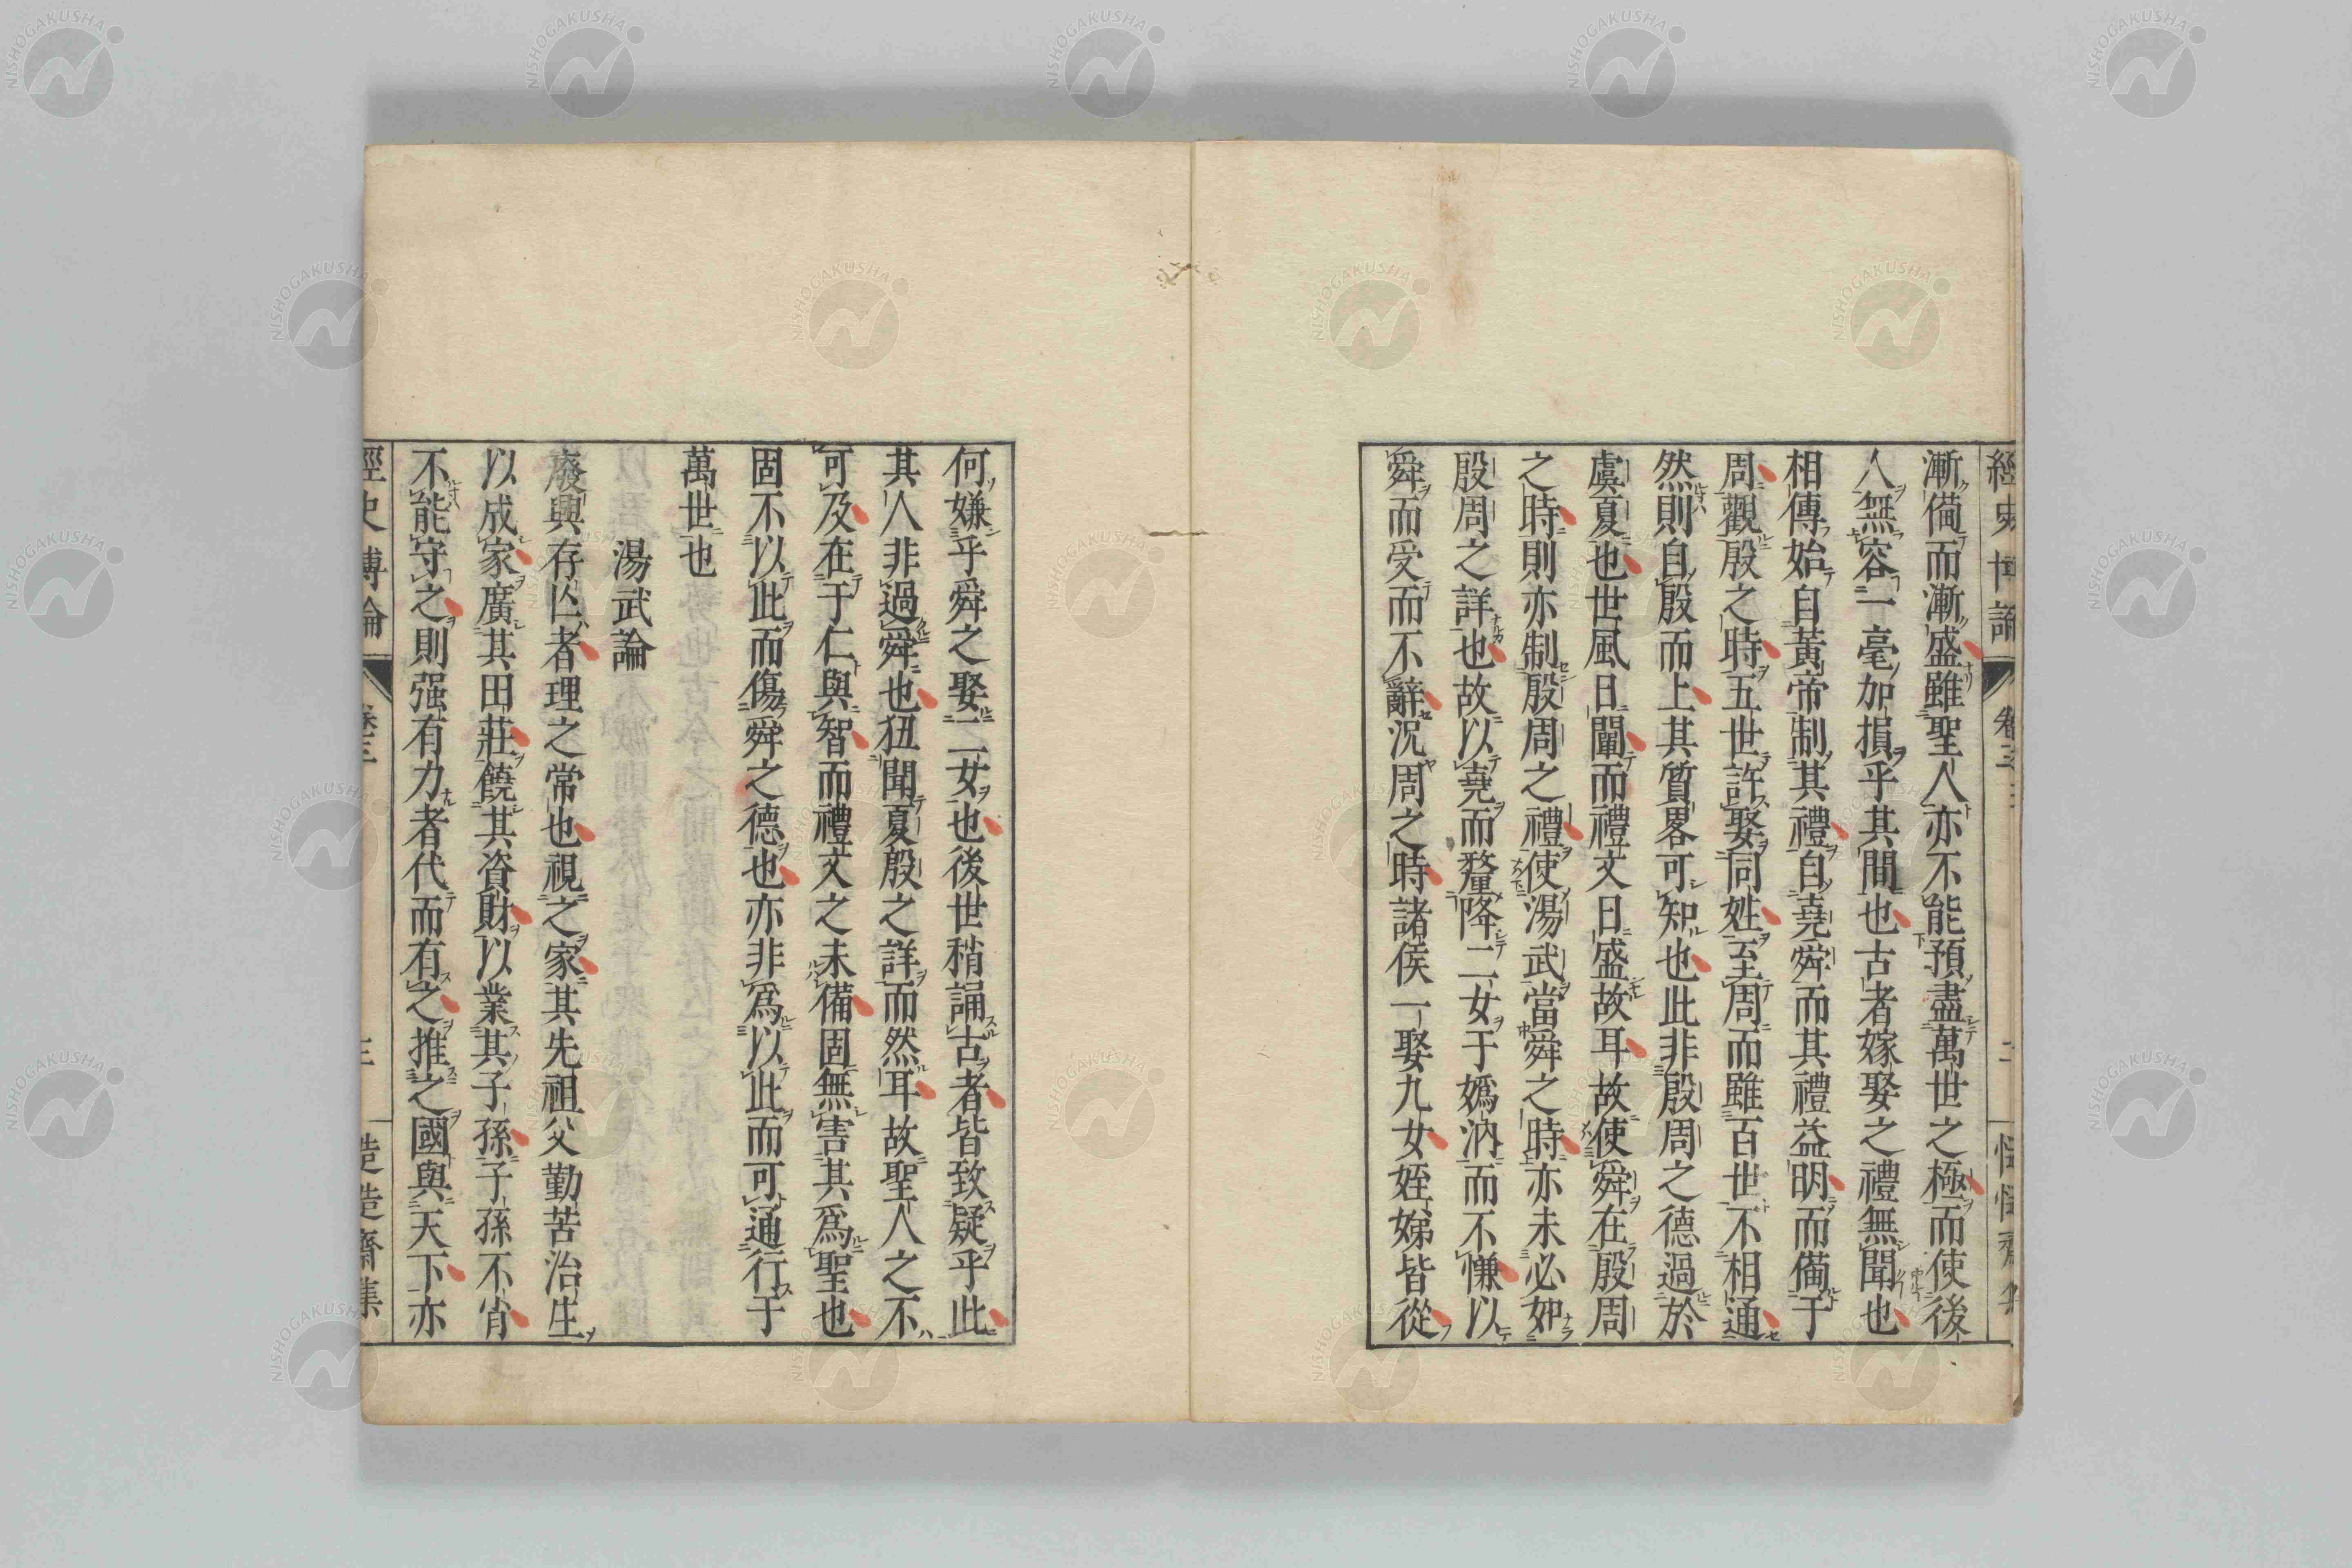 漸備而漸盛雖聖人亦不能預盡萬世之極而使後
人無容一毫加損乎其間也古者嫁娶之禮無聞也
相傳始自黃帝制其禮自堯舜而其禮益明而備于
周觀殷之時五世許娶同姓至周而雖百世不相通
然則自殷而上其質畧可知也此非殷周之德過於
虞夏也世風日闡而禮文日盛故耳故使舜在殷周
之時則亦制殷周之禮使湯武當舜之時亦未必如
殷周之詳也故以堯而釐降二女于嬀汭而不慊以
舜而受而不辭況周之時諸侯一娶九女姪娣皆從
何嫌乎舜之娶二女也後世稍誦古者皆致疑乎此
其人非過舜也狃聞夏殷之詳而然耳故聖人之不
可及在于仁與智而禮文之未備固無害其爲聖也
固不以此而傷舜之德也亦非爲以此而可通行于
萬世也
湯武論
廢興存亾者理之常也視之家其先祖父勤苦治生
以成家廣其田莊饒其資財以業其子孫子孫不肖
不能守之則强有力者代而有之推之國與天下亦
NISHOGAKUSHA